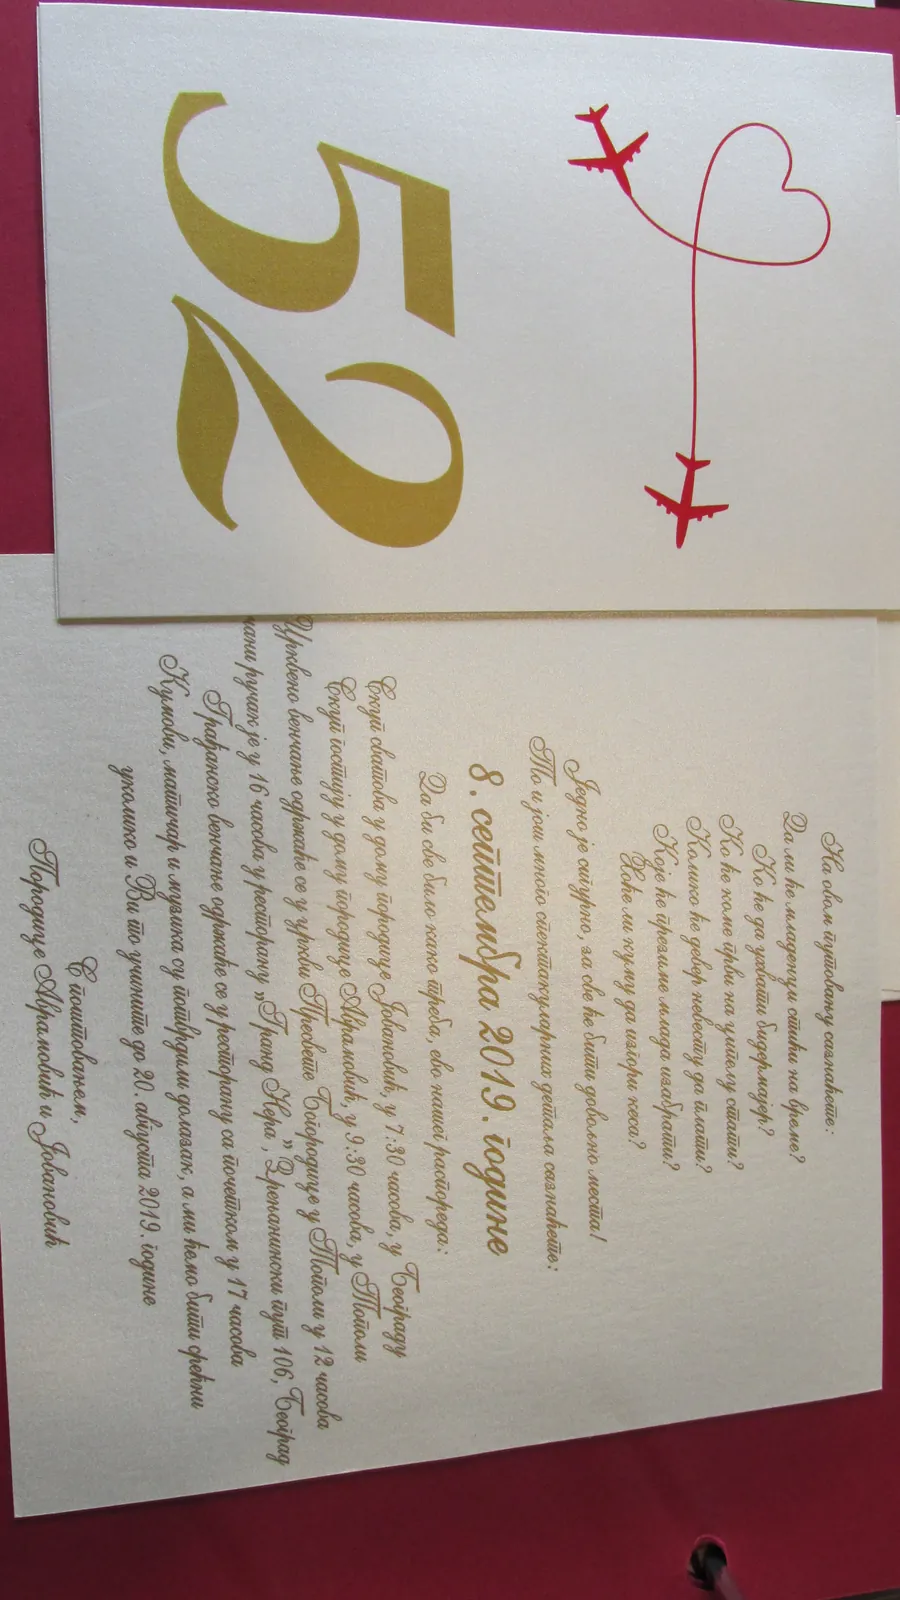 52
На овом путовању сазнаћете:
Да ли ће младенци стићи на време?
Ко ће да ухвати бидермајер?
Ко ће коме први на уміпогу стати?
Колико ће девер невесту да плати?
Које ће презиме млада изабрати?
Хоће ли куму да изгори кеса?
Једно је сигурно, за све ће бити довољно места!
То и још много спектакуларних детаља сазнаћете:
8. септембра 2019. године
Да би све било како треба, ево нашег распореда:
Скуп сватова у дому породице Јовановић, у 7:30 часова, у Београду
Скуп гостију у дому породице Аврамовић, у 9:30 часова, у Тополи
Црквено венчање одржаће се у цркви Пресвете Богородице у Тополи у 12 часова
чани ручак је у 16 часова у ресторану „Гранд Нера”, Зрењанински пут 106, Београд
Грађанско венчање одржаће се у ресторану са почетком у 17 часова
Кумови, матичар и музика су потврдили долазак, а ми ћемо бити срећни
уколико и Ви то учините до 20. августа 2019. године
С поштовањем,
Породице Аврамовић и Јовановић